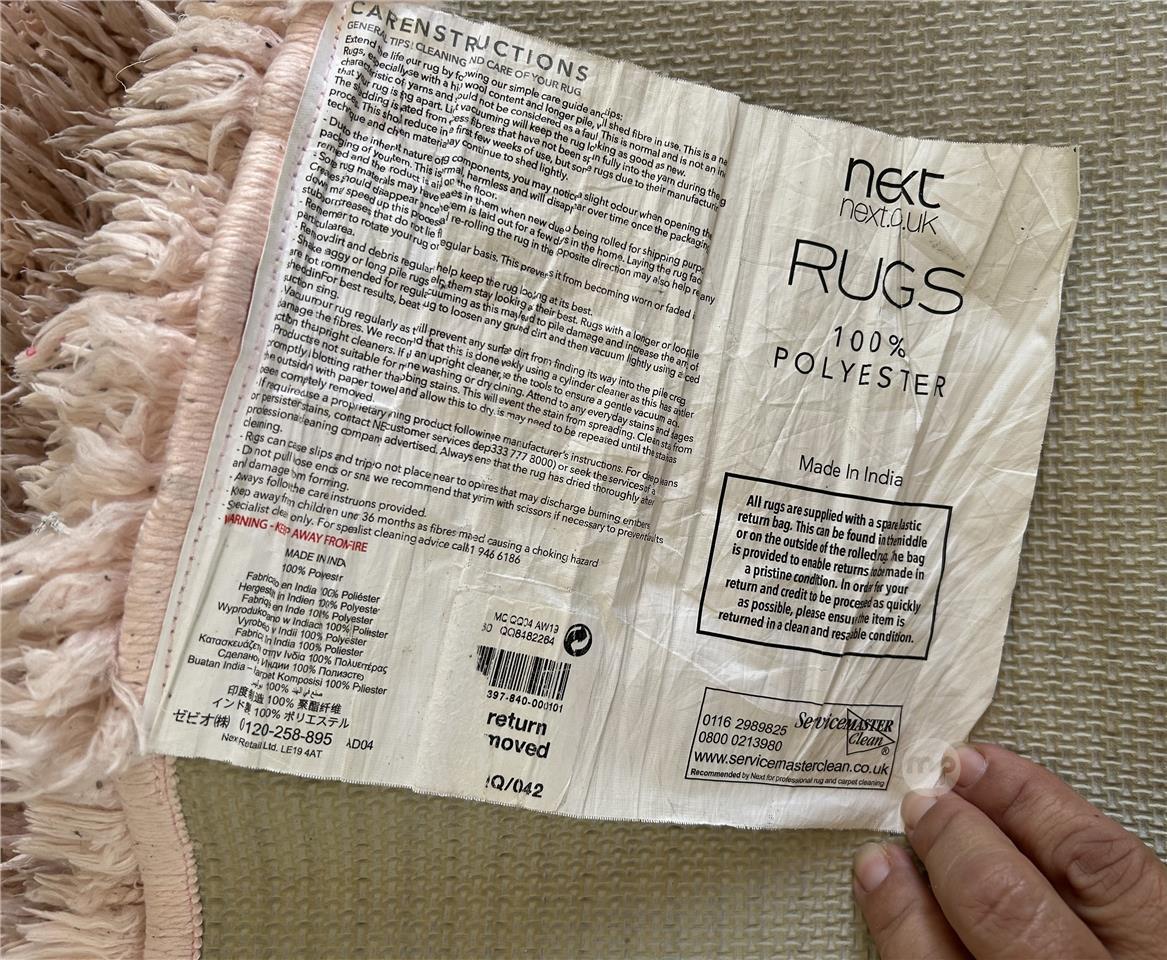 CARENSTRUCTIONS
GENERAL TIPS! CLEANING ND CARE OF YOUR RUG
Extend the life our rug by fo wing our simple care guide an ips:
Rugs, especially se with a hi wool content and longer pile, ll shed fibre in use. This is a na
characteristic of yarns and ould not be considered as a faul This is normal and is not an in
that your rug is ng apart. Li t vacuuming will keep the rug lo king as good as new.
The shedding is ated from ess fibres that have not been sp n fully into the yarn during the
proces. This sho reduce in a first few weeks of use, but som rugs due to their manufacturi
techque and ch en materia ay continue to shed lightly.
- Du to the inhe nt nature o g components, you may notic a slight odour when opening the
pacging of you tem. This is rmal, harmless and will disap ar over time once the packaging
remed and the product is ai on the floor.
- Soe rug materials may have eases in them when new due o being rolled for shipping purp
Creses should disappear once em is laid out for a few d s in the home. Laying the rug fac
dow may speed up this process re-rolling the rug in the pposite direction may also help re any
stubborn creases that do not lie fl
- Rememer to rotate your rug o egular basis. This preve s it from becoming worn or faded i
particula area.
- Remov dirt and debris regular help keep the rug lo ing at its best.
- Shake aggy or long pile rugs elp them stay looking a their best. Rugs with a longer or loo pile
are not rommended for regul cuuming as this may le d to pile damage and increase the am of
sheddin For best results, beat ug to loosen any gr und dirt and then vacuum lightly using a ced
suction sing.
- Vacuum our rug regularly as t ill prevent any surfa dirt from finding its way into the pile c
damage the fibres. We recom d that this is done ekly using a cylinder cleaner as this has
ction th upright cleaners. If n an upright cleaner, se the tools to ensure a gentle vacuum
Products e not suitable for m ne washing or dry cl ning. Attend to any everyday stains and
promptly blotting rather tha bbing stains. This will event the stain from spreading. Clean sta from
the outside with paper towel and allow this to dry. is may need to be repeated until the stai
been completely removed.
- If required se a proprietary ning product followin e manufacturer's instructions. For deep
or persisten stains, contact NE customer services dep 333 777 8000) or seek the services of a
professiona leaning compan advertised. Always en e that the rug has dried thoroughly after
cleining.
- Rugs can c se slips and trip o not place near to o res that may discharge burning embers
- Do not pull lose ends or sna we recommend that y rim with scissors if necessary to prevent
and damage om forming.
- Aways follo the care instru ons provided.
- Keep away fm children un 36 months as fibres ma ed causing a choking hazard
- Specialist clea only. For sp alist cleaning advice call 1 946 6186
WARNING - KEEP AWAY FROM FIRE
MADE IN INDIA
100% Polyester
Fabricio en India 100% Poliéster
Hergest in Indien 100% Polyester
Fabriq en Inde 100% Polyester
Wyprodukowano w Indiach 100% Poliester
Vyrobe v Indii 100% Polyester
Fabric în India 100% Poliester
Κατασκευάζεται στην Ινδία 100% Πολυεστέρας
Сделано Индии 100% Полиэстер
Buatan India – arpet Komposisi 100% Pliester
印度制造 100% 聚酯纤维
インド製 100% ポリエステル
ゼビオ(株) 0120-258-895 AD04
Nex Retail Ltd. LE19 4AT
MC QQ04 AW19
30 QQ8482264
397-840-000101
return
moved
!Q/042
next
next.co.uk
RUGS
100%
POLYESTER
Made In India
All rugs are supplied with a spare lastic
return bag. This can be found in the middle
or on the outside of the rolled rug. he bag
is provided to enable returns to be made in
a pristine condition. In order for your
return and credit to be processed as quickly
as possible, please ensure the item is
returned in a clean and resalable condition.
0116 2989825 ServiceMASTER
0800 0213980 Clean®
www.servicemasterclean.co.uk
Recommended by Next for professional rug and carpet cleaning